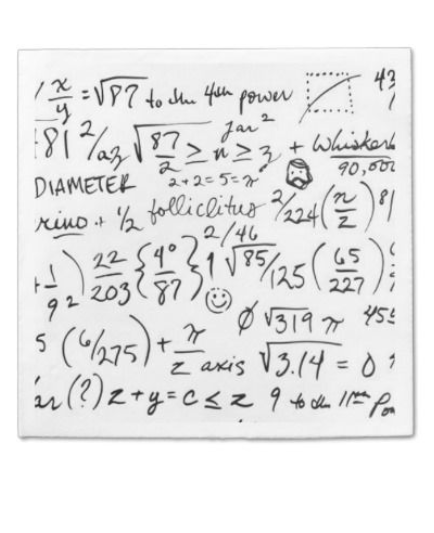 x/y = √87 to the 4th power 43
81 2/az √87/2 ≥ n ≥ z jar² + Whiskerk
DIAMETER 2+2=5=n 90,000
rino + 1/2 folliclitus 2/224 (n/z) 81
+ 1/9 2) 22/203 {4°/87} 1 2/46 √85/125 (65/227)
Ø √319 π 455
5 (6/275) + π/z axis √3.14 = 0
(?) z + y = c ≤ z 9 to the 11th Pow